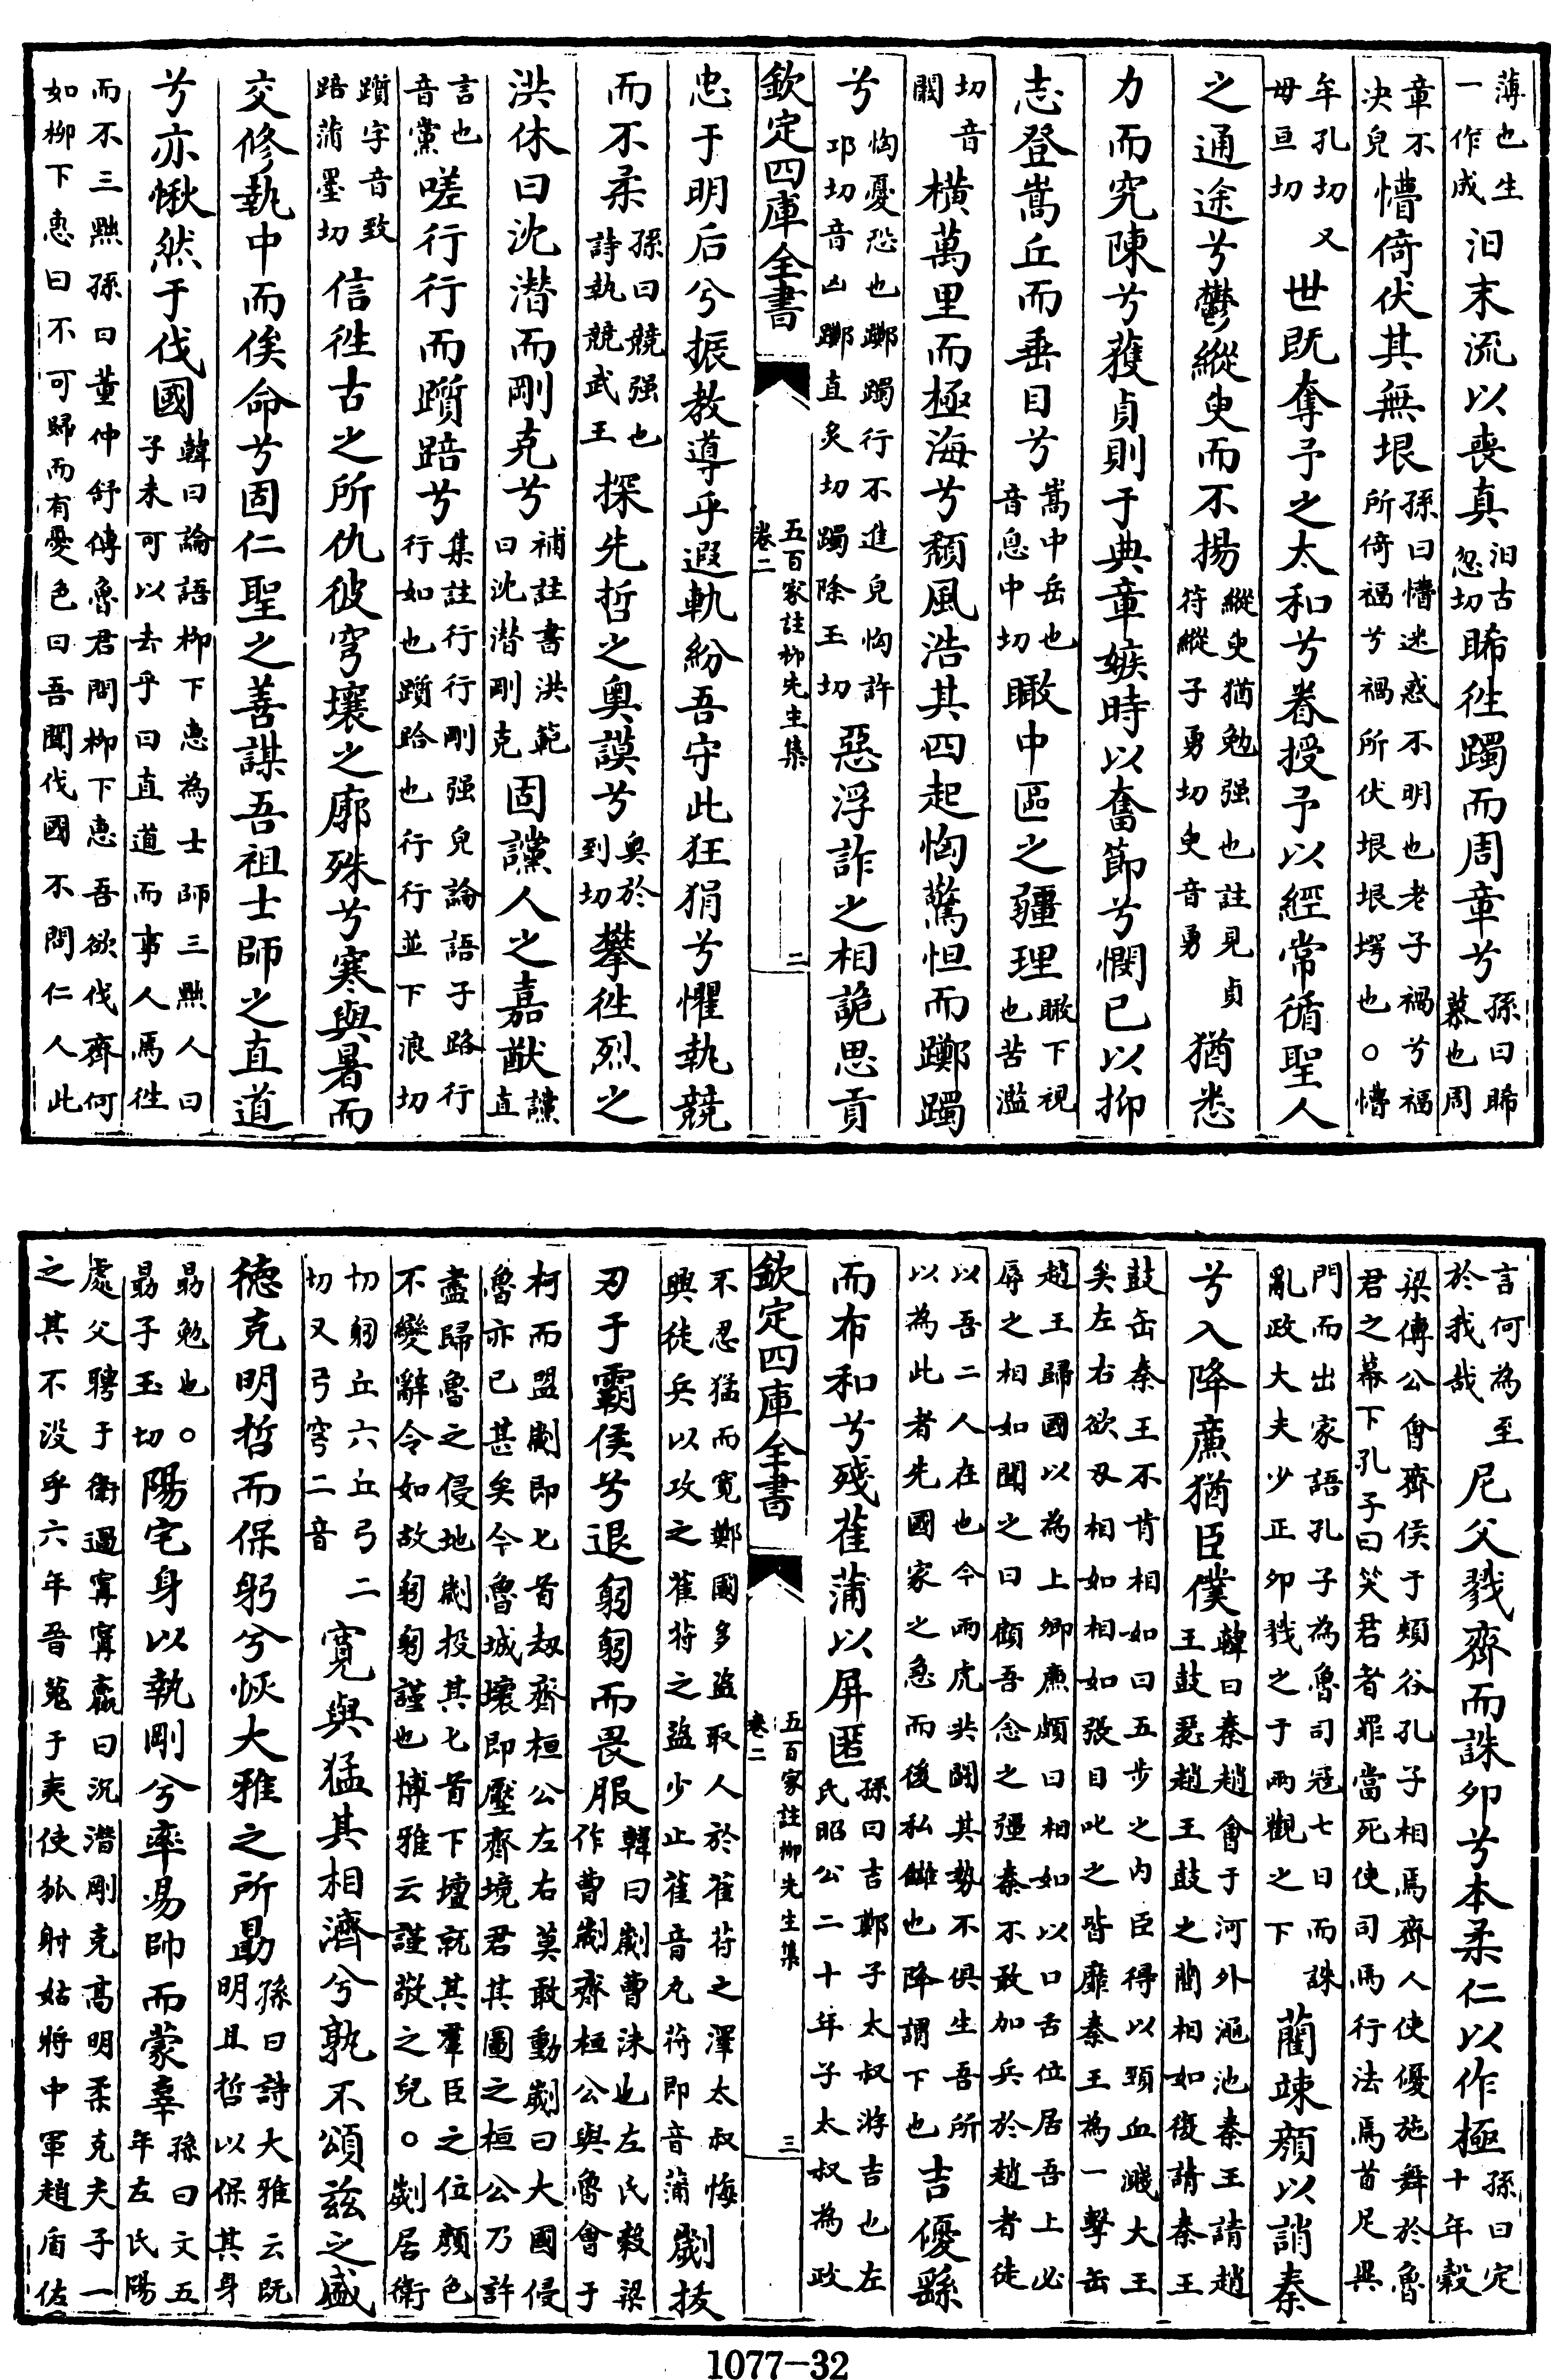 薄也生一作成汨末流以喪真汨古忽切睎徃躅而周章兮孫曰睎慕也周
章不決皃懵倚伏其無垠孫曰懵迷惑不明也老子禍兮福所倚福兮禍所伏垠垠堮也○懵
牟孔切又毋亘切世既奪予之太和兮眷授予以經常循聖人
之通途兮鬱縱臾而不揚縱臾猶勉强也註見貞符縱子勇切臾音勇猶悉
力而究陳兮獲貞則于典章嫉時以奮節兮憫已以抑
志登嵩丘而垂目兮嵩中岳也音息中切瞰中區之疆理瞰下視也苦濫
切音闞橫萬里而極海兮頹風浩其四起恟驚怛而躑躅
兮恟憂恐也躑躅行不進皃恟許邛切音凶躑直炙切躅除玉切惡浮詐之相詭思貢
欽定四庫全書 五百家註柳先生集 卷二 二
忠于明后兮振教導乎遐軌紛吾守此狂狷兮懼執競
而不柔孫曰競强也詩執競武王探先哲之奧謨兮奧於到切攀徃烈之
洪休曰沈潛而剛克兮補註書洪範曰沈潛剛克固讜人之嘉猷讜直
言也音黨嗟行行而躓踣兮集註行行剛强皃論語子路行行如也躓跲也行行並下浪切
躓字音致踣蒲墨切信徃古之所仇彼穹壤之廓殊兮寒與暑而
交修執中而俟命兮固仁聖之善謀吾祖士師之直道
兮亦愀然于伐國韓曰論語柳下惠為士師三黜人曰子未可以去乎曰直道而事人焉徃
而不三黜孫曰董仲舒傳魯君問柳下惠吾欲伐齊何如柳下惠曰不可歸而有憂色曰吾聞伐國不問仁人此
言何為至於我哉尼父戮齊而誅卯兮本柔仁以作極孫曰定十年穀
梁傳公會齊侯于頰谷孔子相焉齊人使優施舞於魯君之幕下孔子曰笑君者罪當死使司馬行法焉首足異
門而出家語孔子為魯司冦七日而誅亂政大夫少正卯戮之于兩觀之下藺竦顏以誚秦
兮入降廉猶臣僕韓曰秦趙會于河外澠池秦王請趙王鼓瑟趙王鼓之藺相如復請秦王
鼓缶秦王不肯相如曰五步之內臣得以頸血濺大王矣左右欲刄相如相如張目叱之皆靡秦王為一擊缶
趙王歸國以為上卿廉頗曰相如以口舌位居吾上必辱之相如聞之曰顧吾念之彊秦不敢加兵於趙者徒
以吾二人在也今兩虎共鬬其勢不俱生吾所以為此者先國家之急而後私讎也降謂下也吉優繇
而布和兮殘萑蒲以屏匿孫曰吉鄭子太叔游吉也左氏昭公二十年子太叔為政
欽定四庫全書 五百家註柳先生集 卷二 三
不忍猛而寛鄭國多盜取人於萑苻之澤太叔悔興徒兵以攻之萑苻之盜少止萑音丸苻即音蒲劌拔
刃于霸侯兮退匑匑而畏服韓曰劌曹沬也左氏糓梁作曹劌齊桓公與魯會于
柯而盟劌即匕首刼齊桓公左右莫敢動劌曰大國侵魯亦已甚矣今魯城壞即壓齊境君其圖之桓公乃許
盡歸魯之侵地劌投其匕首下壇就其羣臣之位顏色不變辭令如故匑匑謹也博雅云謹敬之皃○劌居衛
切匑丘六丘弓二切又弓穹二音寛與猛其相濟兮孰不頌茲之盛
德克明哲而保躬兮恢大雅之所勗孫曰詩大雅云既明且哲以保其身
勗勉也○勗子玉切陽宅身以執剛兮率易帥而蒙辜孫曰文五年左氏陽
處父聘于衛過甯甯嬴曰沉潛剛克高明柔克夫子一之其不没乎六年晉蒐于夷使狐射姑將中軍趙盾佐
1077-32